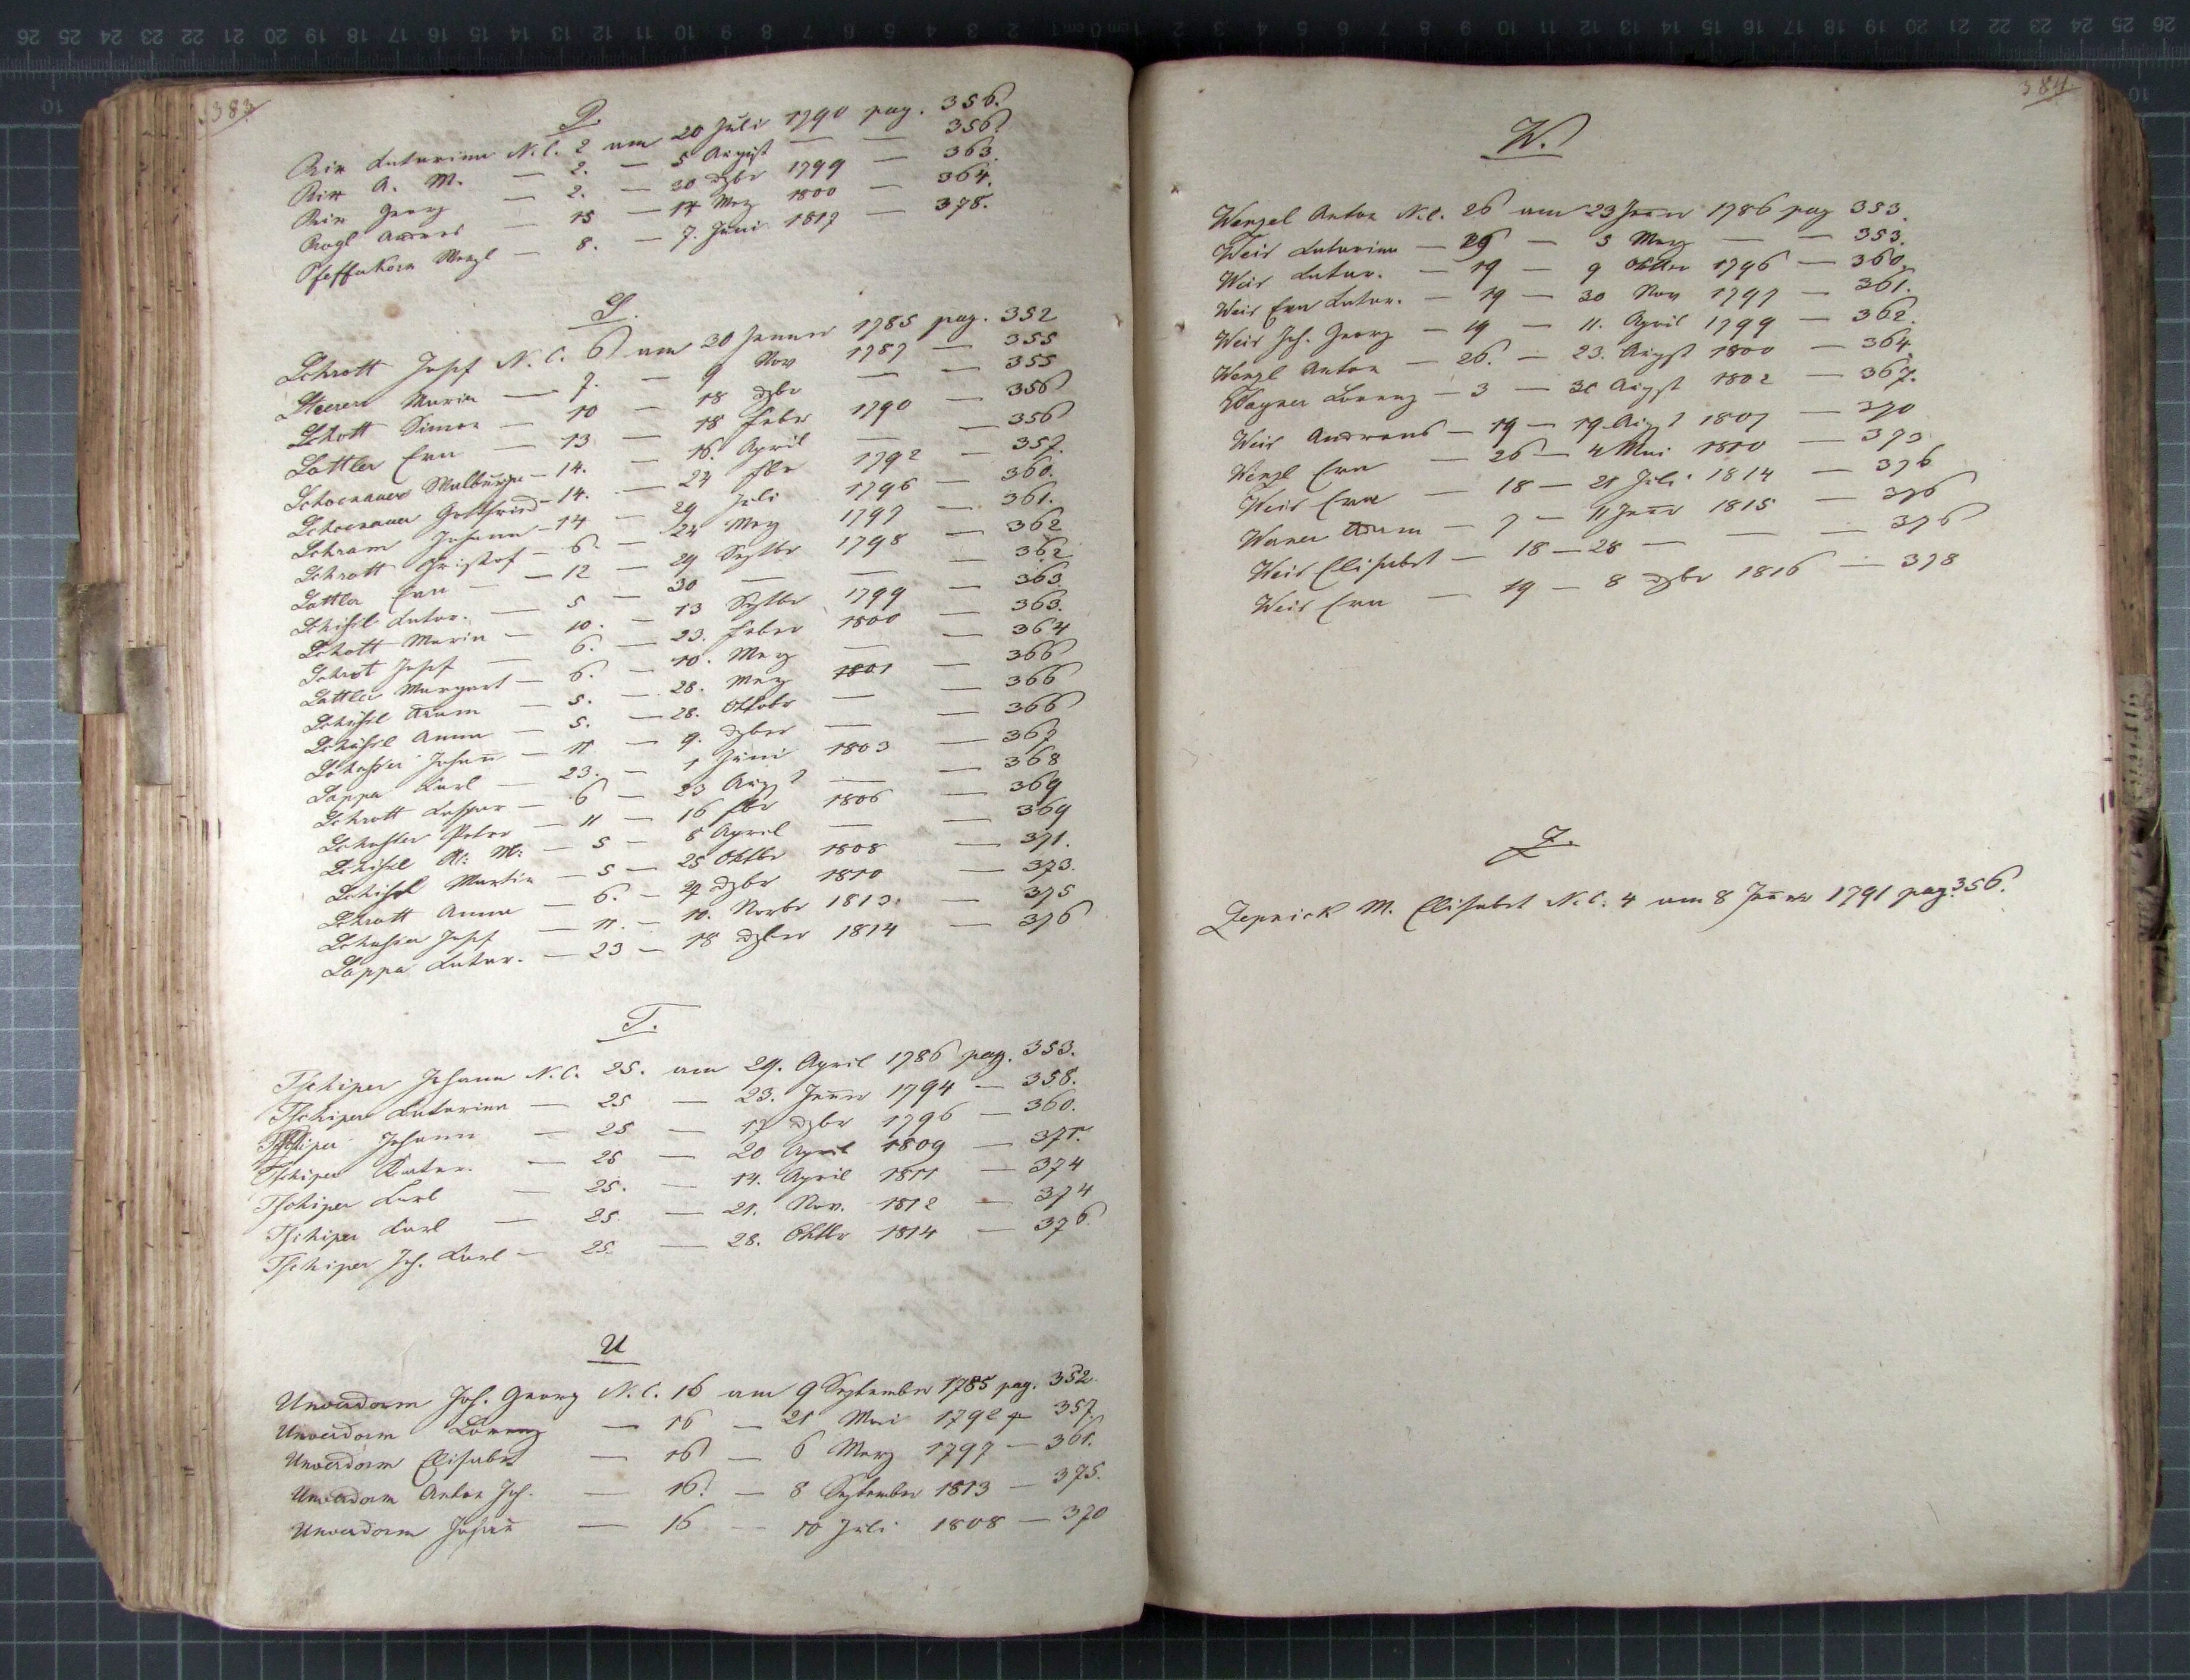 383
P.
Pin Katarina N.C. 2 am 20 Juli 1790 pag. 356.
Pin A. M. — 2. — 5 August — — 356.
Pin Georg — 2. — 30 Xbr 1799 — 363.
Pogl Andreas — 15 — 14 Merz 1800 — 364.
Pfefferkorn Wenzl — 8. — 7. Juni 1817 — 378.
S.
Schrott Josef N.C. 6 am 30 Jenner 1785 pag. 352
Maria — 7. — 9 Nov 1787 — 355
Schott Simon — 10 — 18 Xbr — — 355
Sattler Eva — 13 — 18 Feber 1790 — 356
Schoenauer Walburga — 14. — 16. April — — 356
Schoenauer Gottfried — 14. — 24 1792 — 357.
Schram Johann — 14 — 29 Juli 1796 — 360.
Schrott Cristof — 6. — 24 Merz 1797 — 361.
Sattler Eva — 12 — 29 Septbr 1798 — 362
Katar. — 5 — 30 — — 362
Schott Maria — 10. — 13 Septbr 1799 — 363
Schrot Josef — 6. — 23. Feber 1800 — 363.
Sattler Margaret — 6. — 10. Merz — — 364
Adam — 5. — 28. Merz 1801 — 366
Anna — 5. — 28. Oktobr — — 366
Johann — 11 — 9. Xber — — 366
Sappa Karl — 23. — 1 Juni 1803 — 367
Schrott Kaspar — 6 — 23 Aug — — 368
Peter — 11 — 16 1806 — 369
A: M: — 5 — 8 April — — 369
Martin — 5 — 25 Oktbr 1808 — 371.
Schrott Anna — 6. — 29 Xbr 1810 — 373.
Josef — 11. — 10. Novbr 1813. — 375
Sappa Katar. — 23 — 18 Xber 1814 — 376
T.
Tschiper Johann N.C. 25. am 29. April 1786 pag. 353.
Tschiper Katarina — 25 — 23. Jenner 1794 — 358.
Tschiper Johann — 25 — 17 Xbr 1796 — 360.
Tschiper Katar. — 25 — 20 April 1809 — 371.
Tschiper Karl — 25. — 14. April 1811 — 374
Tschiper Karl — 25 — 21. Nov. 1812 — 374
Tschiper Joh. Karl — 25. — 28. Oktbr 1814 — 376.
U
Unverdorm Joh. Georg N.C. 16 am 9 September 1785 pag. 352.
Unverdorm Lorenz — 16 — 21 Mai 1792 — 357.
Unverdorm Elisabet — 16 — 6 Merz 1797 — 361.
Unverdorm Anton Joh. — 16. — 8 September 1813 — 375.
Unverdorm Johañ — 16 — 10 Juli 1808 — 370
384
W.
Wenzel Anton N.C. 26 am 23 Jenner 1786 pag 353.
Weis Katarina — 29 — 5 Merz — — 353.
Weis Katar. — 19 — 9 Oktber 1796 — 360.
Weis Eva Katar. — 19 — 30 Nov 1797 — 361.
Weis Joh. Georg — 19 — 11. April 1799 — 362.
Wenzl Anton — 26. — 23. Augst 1800 — 364.
Wagner Lorenz — 3 — 30 Augst 1802 — 367.
Weis Andreas — 19 — 19 Aug 1807 — 370
Wenzl Eva — 26 — 4 Mai 1810 — 373
Weis Eva — 18 — 21 Juli 1814 — 376
Adam — 7 — 11 Jener 1815 — 376
Weis Elisabet — 18 — 28 — — — 376
Weis Eva — 19 — 8 Xbr 1816 — 378
Z.
Zepnick M. Elisabet N.C. 4 am 8 Jenner 1791 pag. 356.